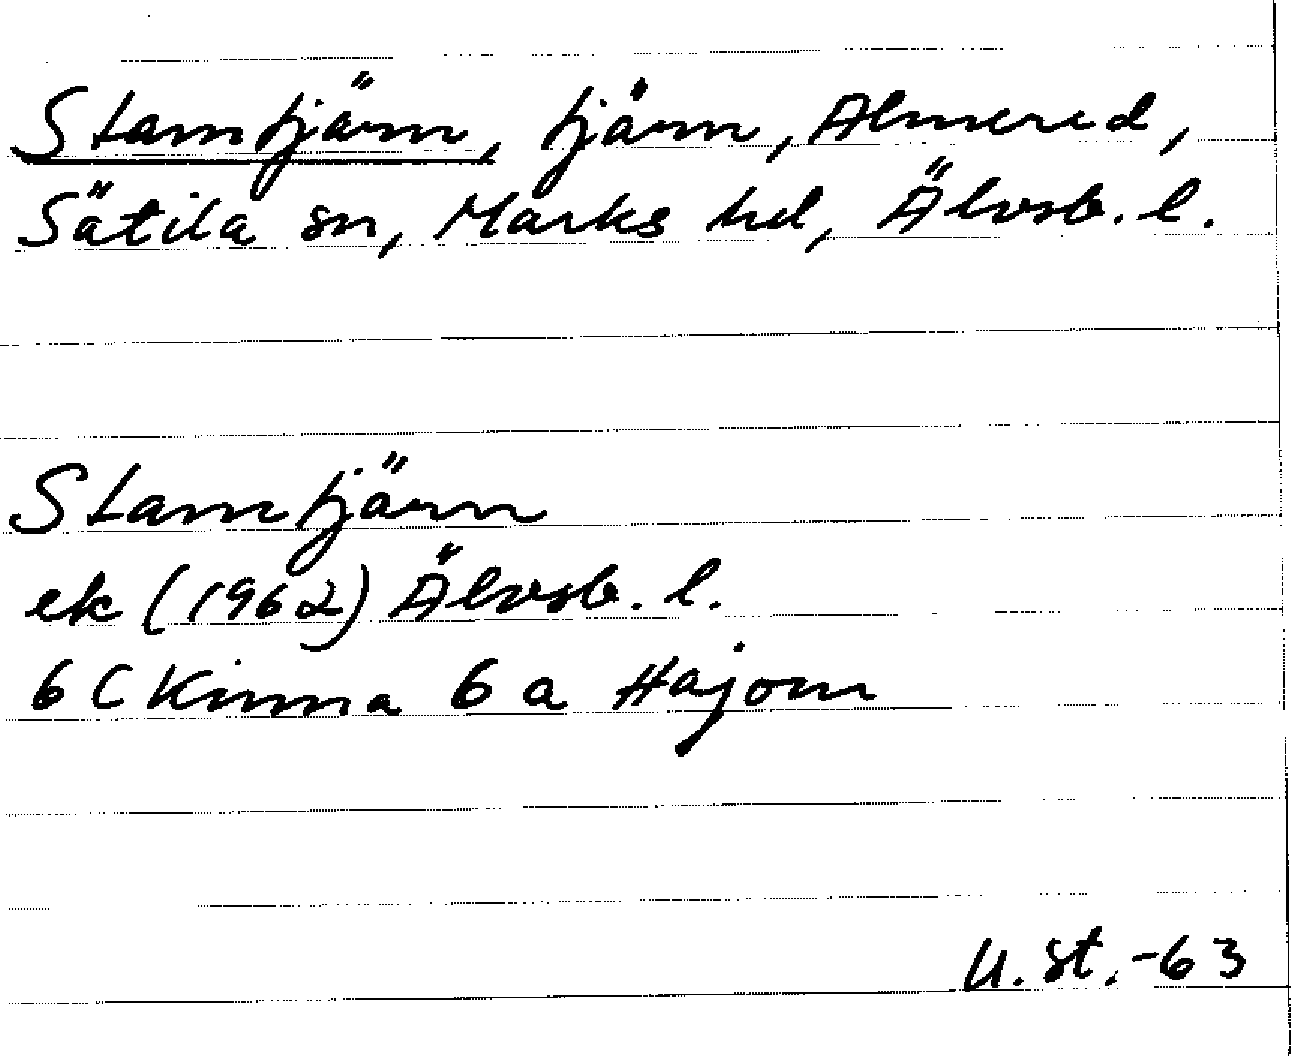 Stamtjärn, tjärn, Almered,
Sätila sn, Marks hd, Älvsb. l.
Stamtjärn
ek (1962) Älvsb. l.
6 C Kinna 6 a Hajom
U. st. -63